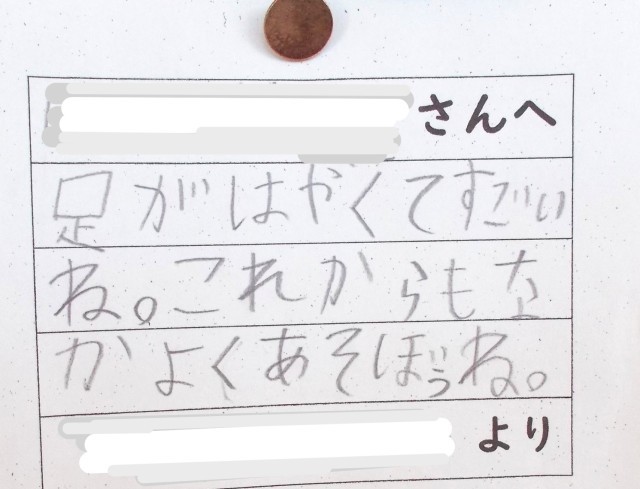 さんへ
足がはやくてすごい
ね。これからもな
かよくあそぼうね。
より